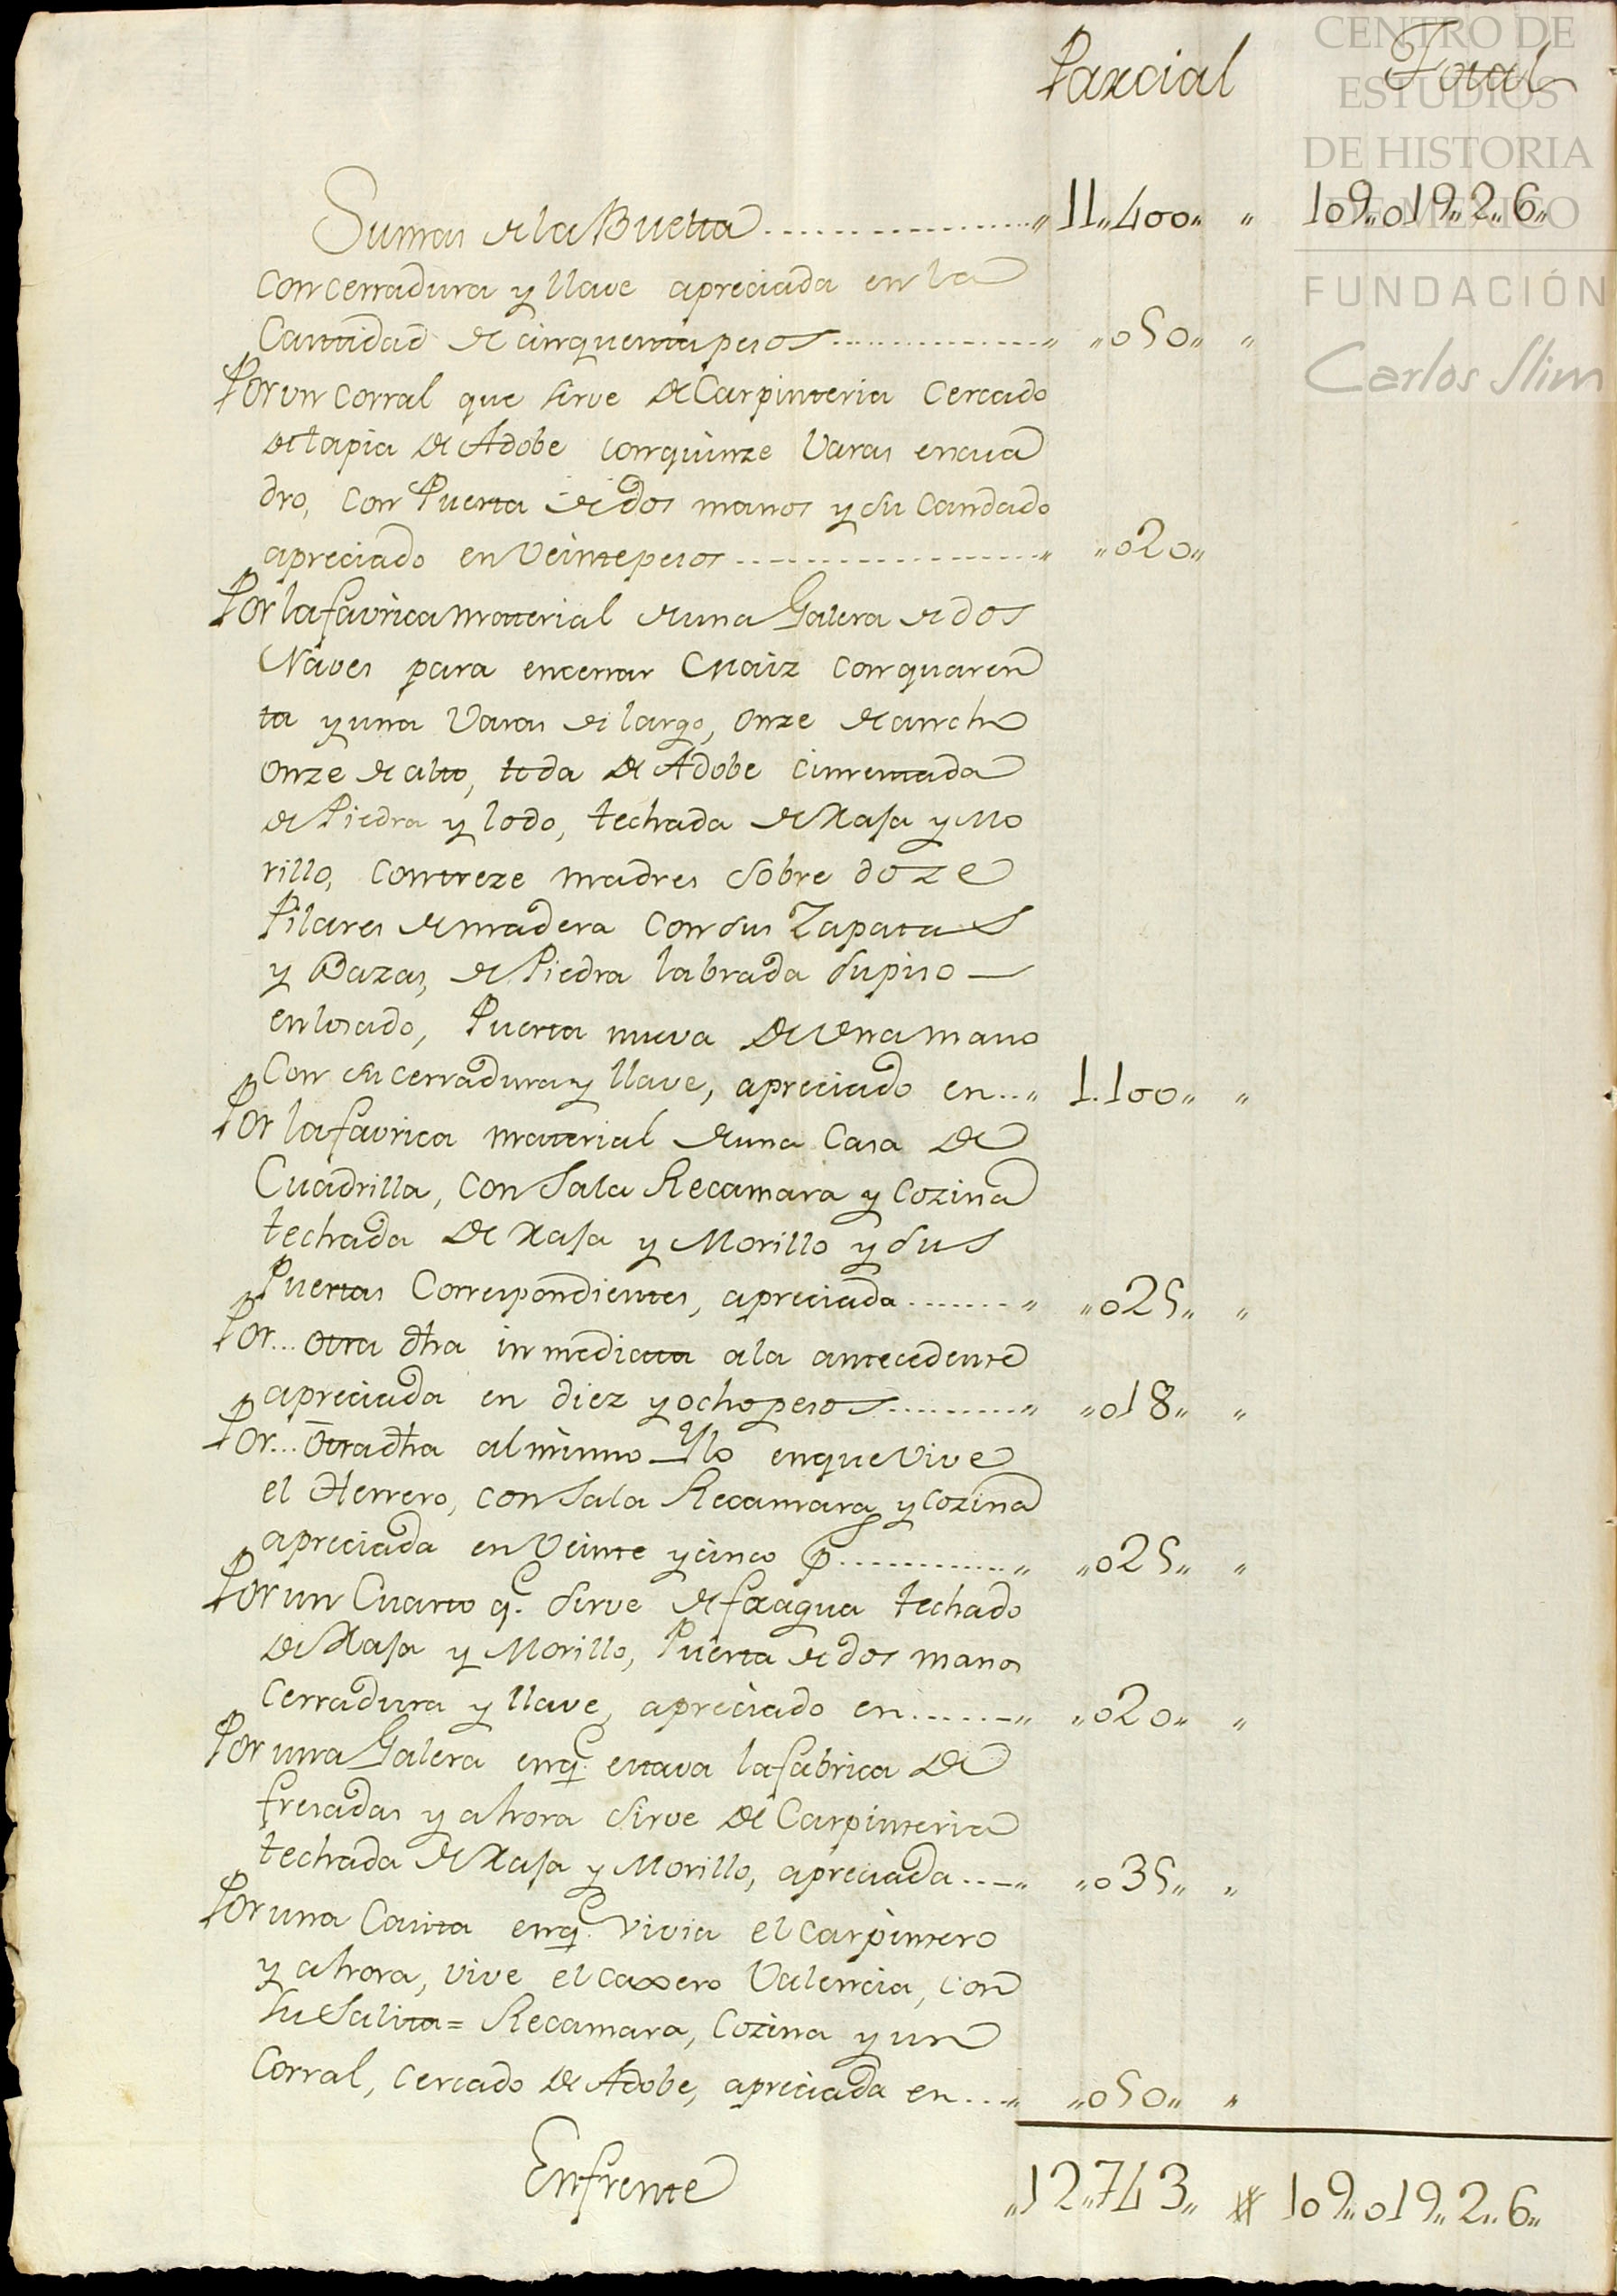 CENTRO DE
ESTUDIOS
DE HISTORIA
DE MÉXICO
FUNDACIÓN
Carlos Slim
Parcial Total
Sumas de la Buelta ................ " 11,,400,, " 109,,019,,2,,6,,
con cerradura y llave apreciada en la
Cantidad de cinquenta pesos ................ " ,,050,, "
Por un corral que sirve de Carpinteria Cercado
de tapia de Adobe con quinze Varas en cua
dro, con Puerta de dos manos y su Candado
apreciado en Veinte pesos ................ " ,,020,,
Por la favrica material de una Galera de dos
Naves para encerrar Maiz con quaren
ta y una Varas de largo, onze de ancho
onze de alto, toda de Adobe cimentada
de Piedra y lodo, techada de Xasa y Mo
rillo, con treze madres sobre doze
Pilares de madera con sus Zapatas
y Bazas, de Piedra labrada su piso —
enlosado, Puerta nueva de una mano
Con su cerradura y llave, apreciado en .. " 1.100,, "
Por la favrica material de una Casa de
Cuadrilla, con Sala Recamara y Cozina
techada de Xasa y Morillo y sus
Puertas Correspondientes, apreciada ........ " ,,025,, "
Por... otra dha inmediata a la antecedente
apreciada en diez y ocho pesos .......... " ,,018,, "
Por... otra dha al mismo — Ylo en que Vive
el Herrero, con Sala Recamara y Cozina
apreciada en Veinte y cinco p ............ " ,,025,, "
Por un Cuarto q.e sirve de fragua techado
de Xasa y Morillo, Puerta de dos manos
Cerradura y llave, apreciado en ........ " ,,020,, "
Por una Galera en q.e estava la fabrica de
fresadas y ahora sirve de Carpinteria
techada de Xasa y Morillo, apreciada .... " ,,035,, "
Por una Casita en q.e vivia el carpintero
y ahora, vive el caxero Valencia, con
su Salita = Recamara, Cozina y un
Corral, cercado de Adobe, apreciada en .... " ,,050,, "
Enfrente ,,12,,743,, # 109,,019,,2,,6,,